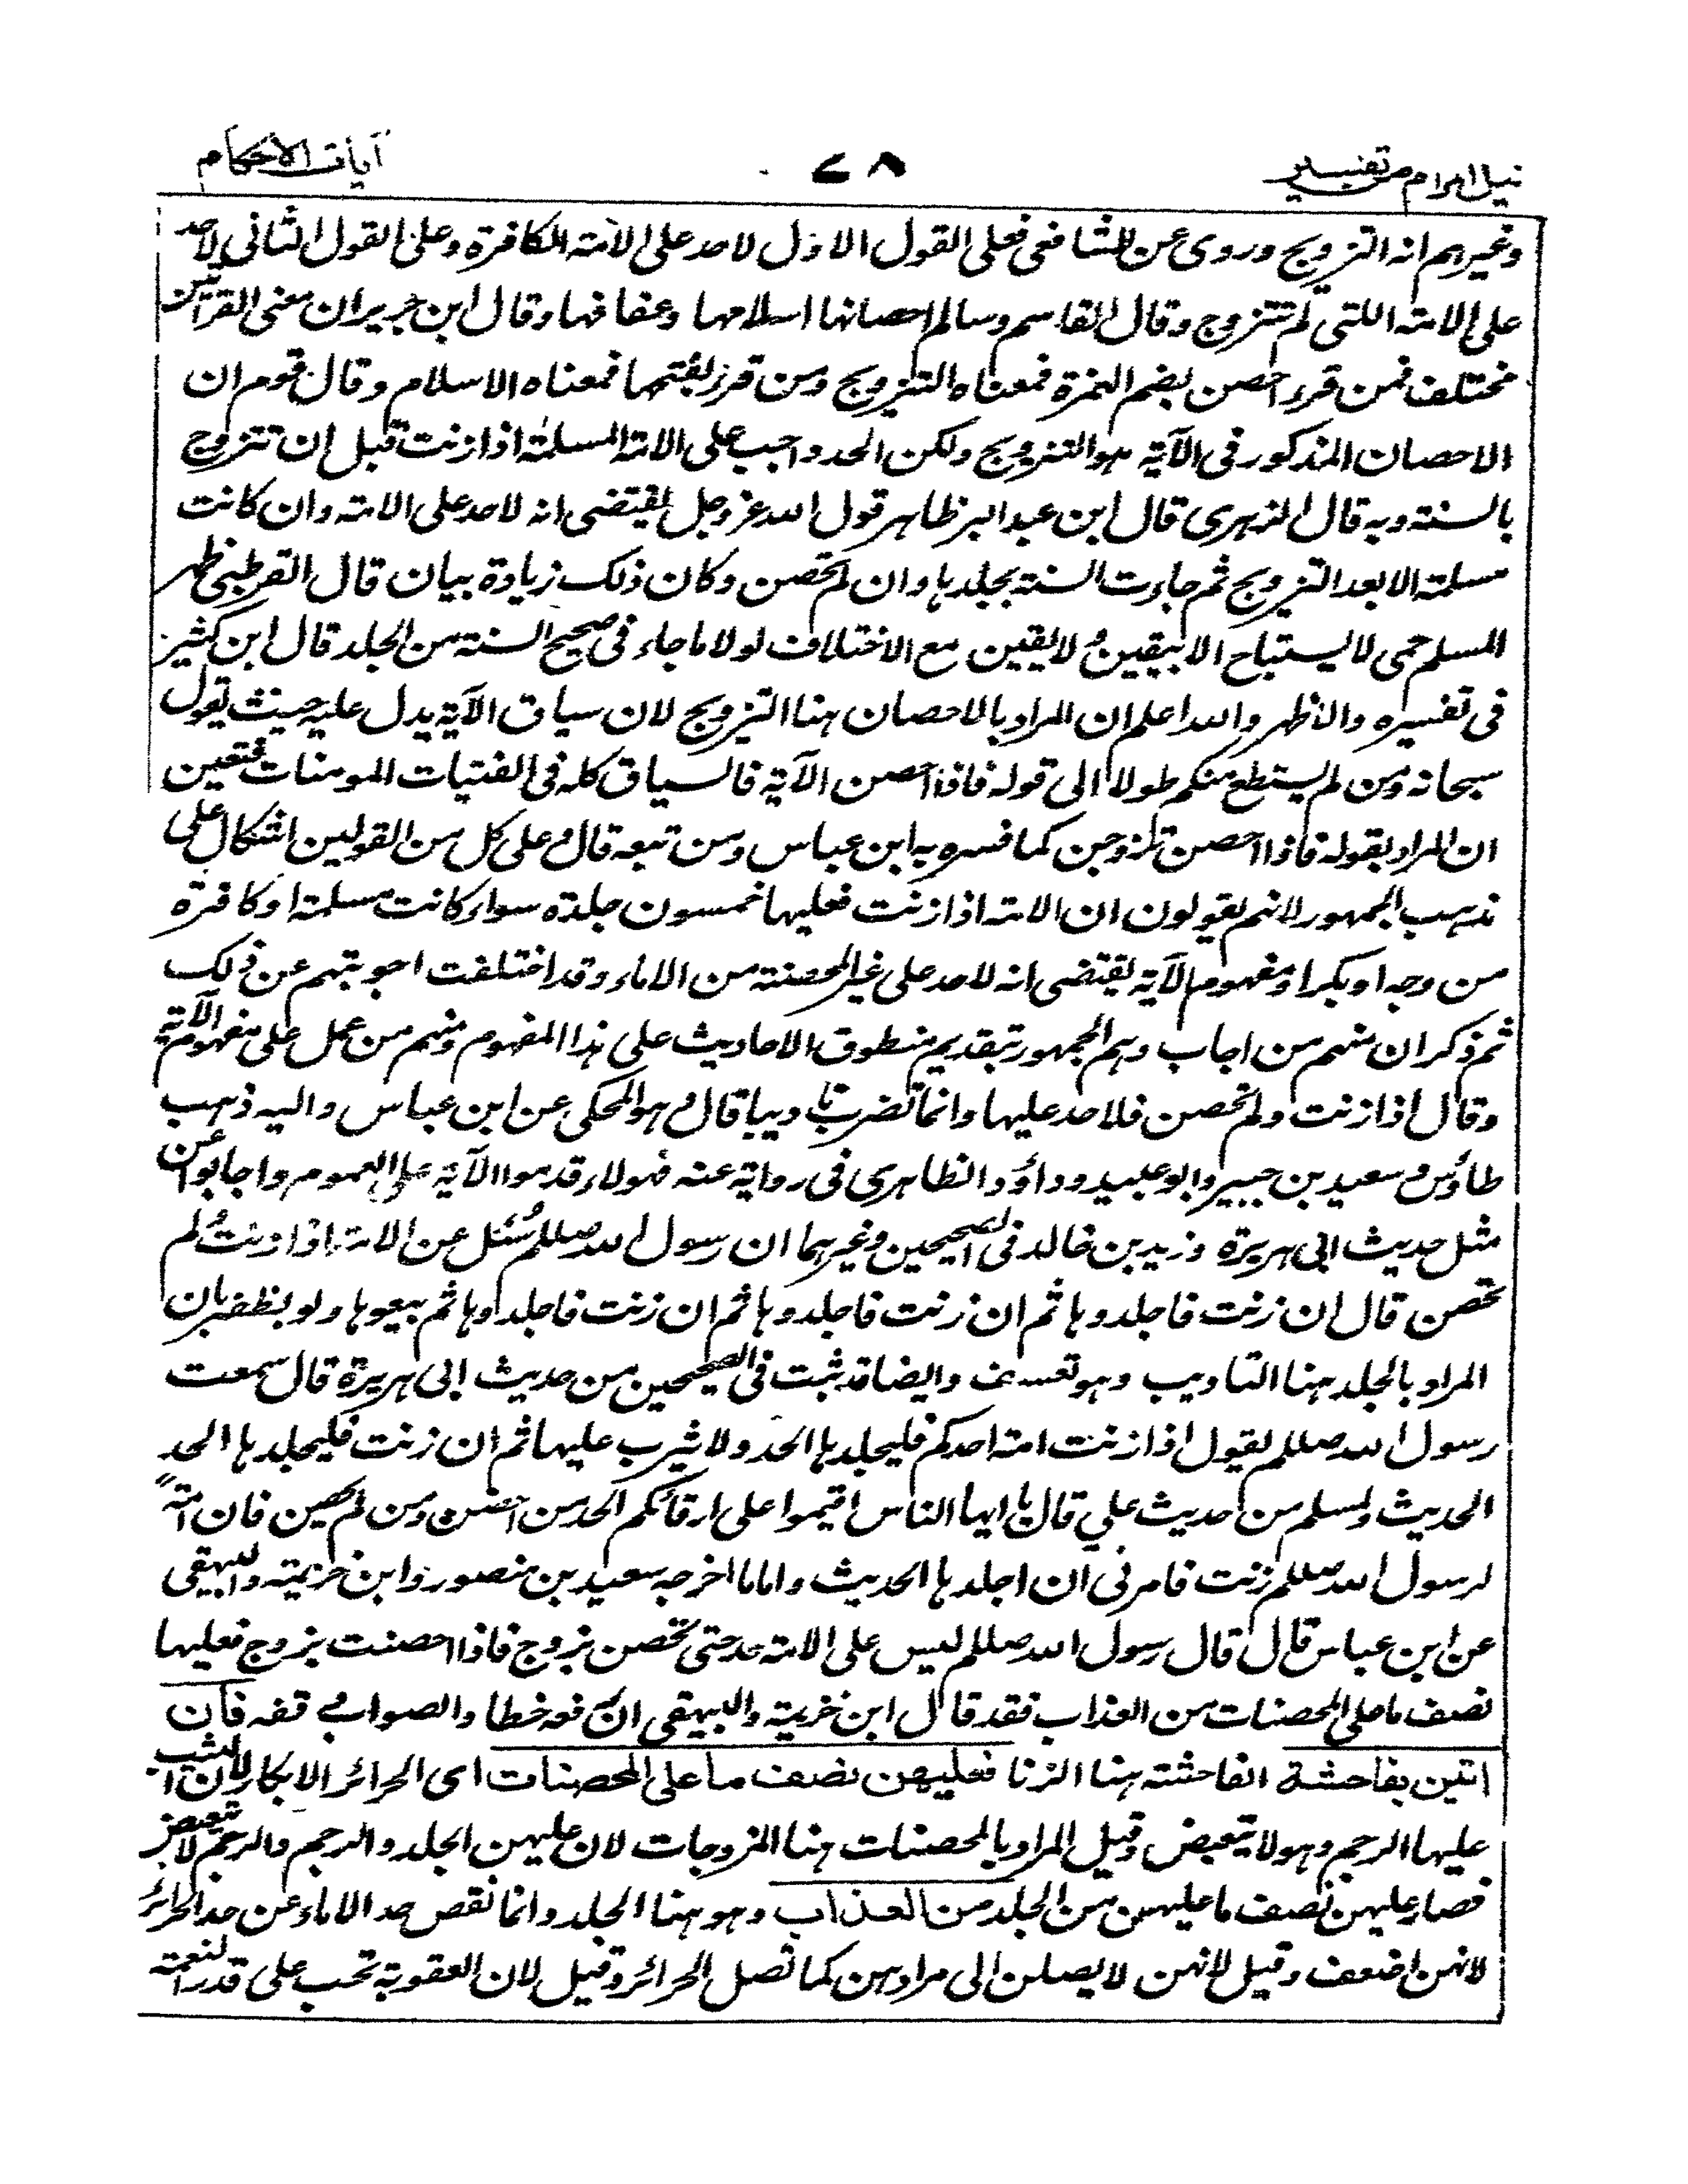 نيل المرام من تفسير ٧٨ آيات الاحكام
وغيرهم انه التزويج وروى عن الشافعي فعلى القول الاول لا حد على الامة الكافرة وعلى القول الثاني لا حد
على الامة اللتى لم تتزوج وقال القاسم وسالم احصانها اسلامها وعفافها وقال ابن جرير ان معنى القراءتين
مختلف فمن قرء احصن بضم الهمزة فمعناه التزويج ومن قرء بفتحها فمعناه الاسلام وقال قوم ان
الاحصان المذكور فى الآية هو التزويج ولكن الحد واجب على الامة المسلمة اذا زنت قبل ان تتزوج
بالسنة وبه قال الزهرى قال ابن عبد البر ظاهر قول الله عز وجل يقتضى انه لا حد على الامة وان كانت
مسلمة الا بعد التزويج ثم جاءت السنة بجلدها وان لم تحصن وكان ذلك زيادة بيان قال القرطبى ظهر
المسلم حمى لا يستباح الا بيقين ولا يقين مع الاختلاف لولا ما جاء فى صحيح السنة من الجلد قال ابن كثير
فى تفسيره والاظهر والله اعلم ان المراد بالاحصان هنا التزويج لان سياق الآية يدل عليه حيث يقول
سبحانه ومن لم يستطع منكم طولا الى قوله فاذا احصن الآية فالسياق كله فى الفتيات المومنات فتعين
ان المراد بقوله فاذا احصن تزوجن كما فسره به ابن عباس ومن تبعه قال وعلى كل من القولين اشكال على
مذهب الجمهور لانهم يقولون ان الامة اذا زنت فعليها خمسون جلدة سواء كانت مسلمة او كافرة
مزوجه او بكرا ومفهوم الآية يقتضى انه لا حد على غير المحصنة من الاماء وقد اختلفت اجوبتهم عن ذلك
ثم ذكر ان منهم من اجاب وهم الجمهور بتقديم منطوق الاحاديث على هذا المفهوم ومنهم من عمل على مفهوم الآية
وقال اذا زنت ولم تحصن فلا حد عليها وانما تضرب تاديبا قال وهو المحكى عن ابن عباس واليه ذهب
طاؤس وسعيد بن جبير وابو عبيد وداؤد الظاهرى فى رواية عنه فهولاء قدموا الآية على العموم واجابوا عن
مثل حديث ابى هريرة وزيد بن خالد فى الصحيحين وغيرهما ان رسول الله صللم سُئل عن الامة اذا زنت ولم
تحصن قال ان زنت فاجلدوها ثم ان زنت فاجلدوها ثم ان زنت فاجلدوها ثم بيعوها ولو بظفير بان
المراد بالجلد هنا التاديب وهو تعسف وايضا قد ثبت فى الصحيحين من حديث ابى هريرة قال سمعت
رسول الله صللم يقول اذا زنت امة احدكم فليجلدها الحد ولا يثرب عليها ثم ان زنت فليجلدها الحد
الحديث ولمسلم من حديث علي قال يا ايها الناس اقيموا على ارقائكم الحد من احصن ومن لم يحصن فان امةً
لرسول الله صللم زنت فامرنى ان اجلدها الحديث واما ما اخرجه سعيد بن منصور وابن خزيمة والبيهقى
عن ابن عباس قال قال رسول الله صللم ليس على الامة حد حتى تحصن بزوج فاذا احصنت بزوج فعليها
نصف ما على المحصنات من العذاب فقد قال ابن خزيمة والبيهقى ان رفعه خطا والصواب وقفه فان
اتين بفاحشة الفاحشة هنا الزنا فعليهن نصف ما على المحصنات اى الحرائر الابكار لان الثيب
عليها الرجم وهو لا يتبعض وقيل المراد بالمحصنات هنا المزوجات لان عليهن الجلد والرجم والرجم لا يتبعض
فصار عليهن نصف ما عليهن من الجلد من العذاب وهو هنا الجلد وانما نقص حد الاماء عن حد الحرائر
لانهن اضعف وقيل لانهن لا يصلن الى مرادهن كما تصل الحرائر وقيل لان العقوبة تجب على قدر النعمة